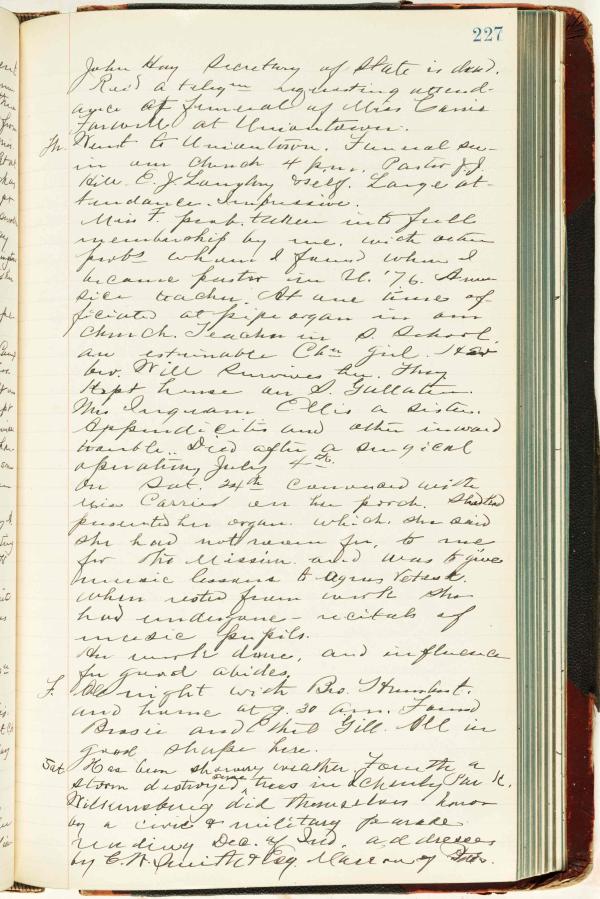 227
John Hay Secretary of State is dead.
Rec'd a telegm requesting attend-
ance at Funeral of Miss Carrie
Farwell at Uniontown.
Th. Went to Uniontown. Funeral ser-
in our church 4 p.m. Pastor J.J.
Hill. C.J. & self. Large at-
tendance. Impressive.
Miss F. prob. taken into full
membership by me, with other
probs whom I found when I
became pastor in U. '76. A mu-
sic teacher. At one time of-
ficiated at pipe organ in our
church. Teacher in S. School,
an estimable Chn girl. Her
bro. Will survives her. They
Kept house on S. Gallatin.
Mrs Ingram Ellis a sister.
Appendicitis and other inward
trouble. Died after a surgical
operation, July 4th.
On Sat. 24th conversed with
Miss Carrie on her porch. She had
presented her organ, which she said
she had not room for, to me
for the Mission, and was to give
music lessons to Agnes
when rested from work she
had undergone - recitals of
music pupils.
Her work done, and influence
for good abides.
F. All night with Bro. Humbert.
and home at 9.30 am. Found
and Ethel Gill. All in
good shape here.
Sat Has been showery weather. Fourth a
storm destroyed some trees in Schenley Park.
Wilkinsburg did themselves honor
by a civic & military parade
reading Dec. of Ind. addresses
by C.W. Smith Esq.